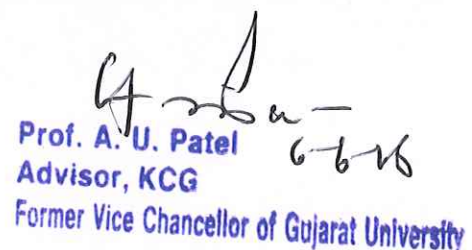 6-6-16
Prof. A. U. Patel
Advisor, KCG
Former Vice Chancellor of Gujarat University